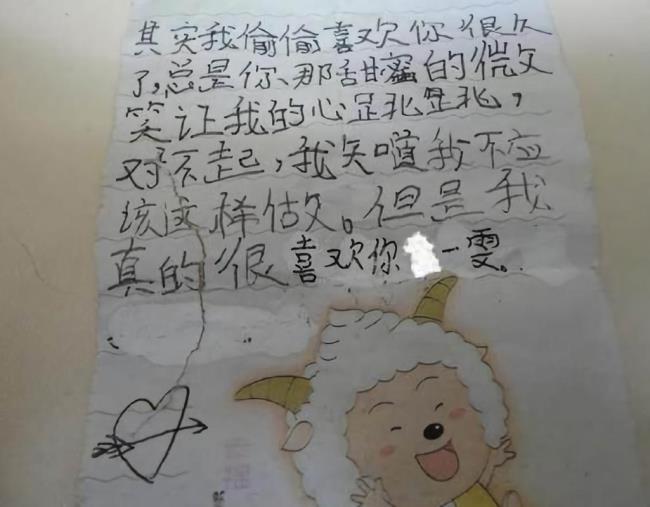 其实我偷偷喜欢你很久
了,总是你、那甜蜜的微
笑让我的心是非是非,
对不起,我知道我不应
该这样做。但是我
真的很喜欢你一雯。